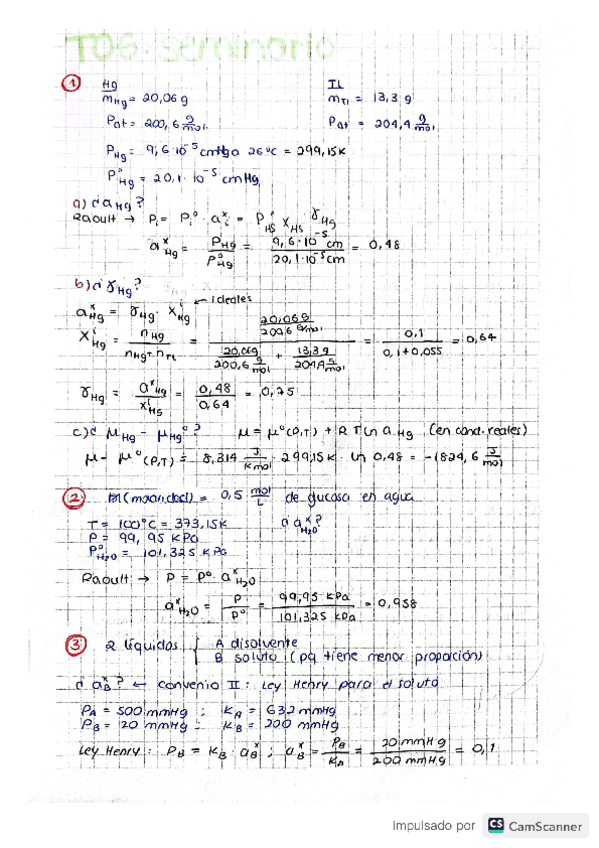 T06. seminario
1 Hg Tl
m_Hg = 20,06 g m_Tl = 13,3 g
P_at = 200,6 g/mol P_at = 204,4 g/mol
P_Hg = 9,6·10^-5 cmHg a 26ºC = 299,15K
Pº_Hg = 20,1·10^-5 cmHg
a) ¿a_Hg?
Raoult → P_i = P_i^o · a_i^x = P_HS^o X_HS γ_Hg
a^x_Hg = P_Hg / Pº_Hg = 9,6·10^-5 cm / 20,1·10^-5 cm = 0,48
b) ¿γ_Hg?
← ideales
a^x_Hg = γ_Hg · X^i_Hg
X^i_Hg = n_Hg / n_Hg + n_TL = 20,06g / 200,6 g/mol / 20,06g / 200,6 g/mol + 13,3 g / 204,4 g/mol = 0,1 / 0,1+0,055 = 0,64
γ_Hg = a^x_Hg / x^i_HS = 0,48 / 0,64 = 0,75
c) ¿ μ_Hg - μ_Hg^o ? μ = μº(P,T) + RT ln a_Hg (en cond. reales)
μ - μº(P,T) = 8,314 J/K mol · 299,15K · ln 0,48 = -1824,6 J/mol
2 m (molaridad) = 0,5 mol/L de glucosa en agua
T = 100ºC = 373,15K ¿ a^x_H2O ?
P = 99,95 KPa
Pº_H2O = 101,325 KPa
Raoult → P = Pº · a^x_H2O
a^x_H2O = P / Pº = 99,95 KPa / 101,325 KPa = 0,958
3 2 líquidos { A disolvente
B soluto (pq tiene menor proporción)
¿ a^x_B ? ← convenio II: Ley Henry para el soluto
P_A = 500 mmHg ; K_A = 632 mmHg
P_B = 20 mmHg ; K_B = 200 mmHg
Ley Henry : P_B = K_B · a_B^x ; a_B^x = P_B / K_A = 20 mmHg / 200 mmHg = 0,1
Impulsado por CS CamScanner